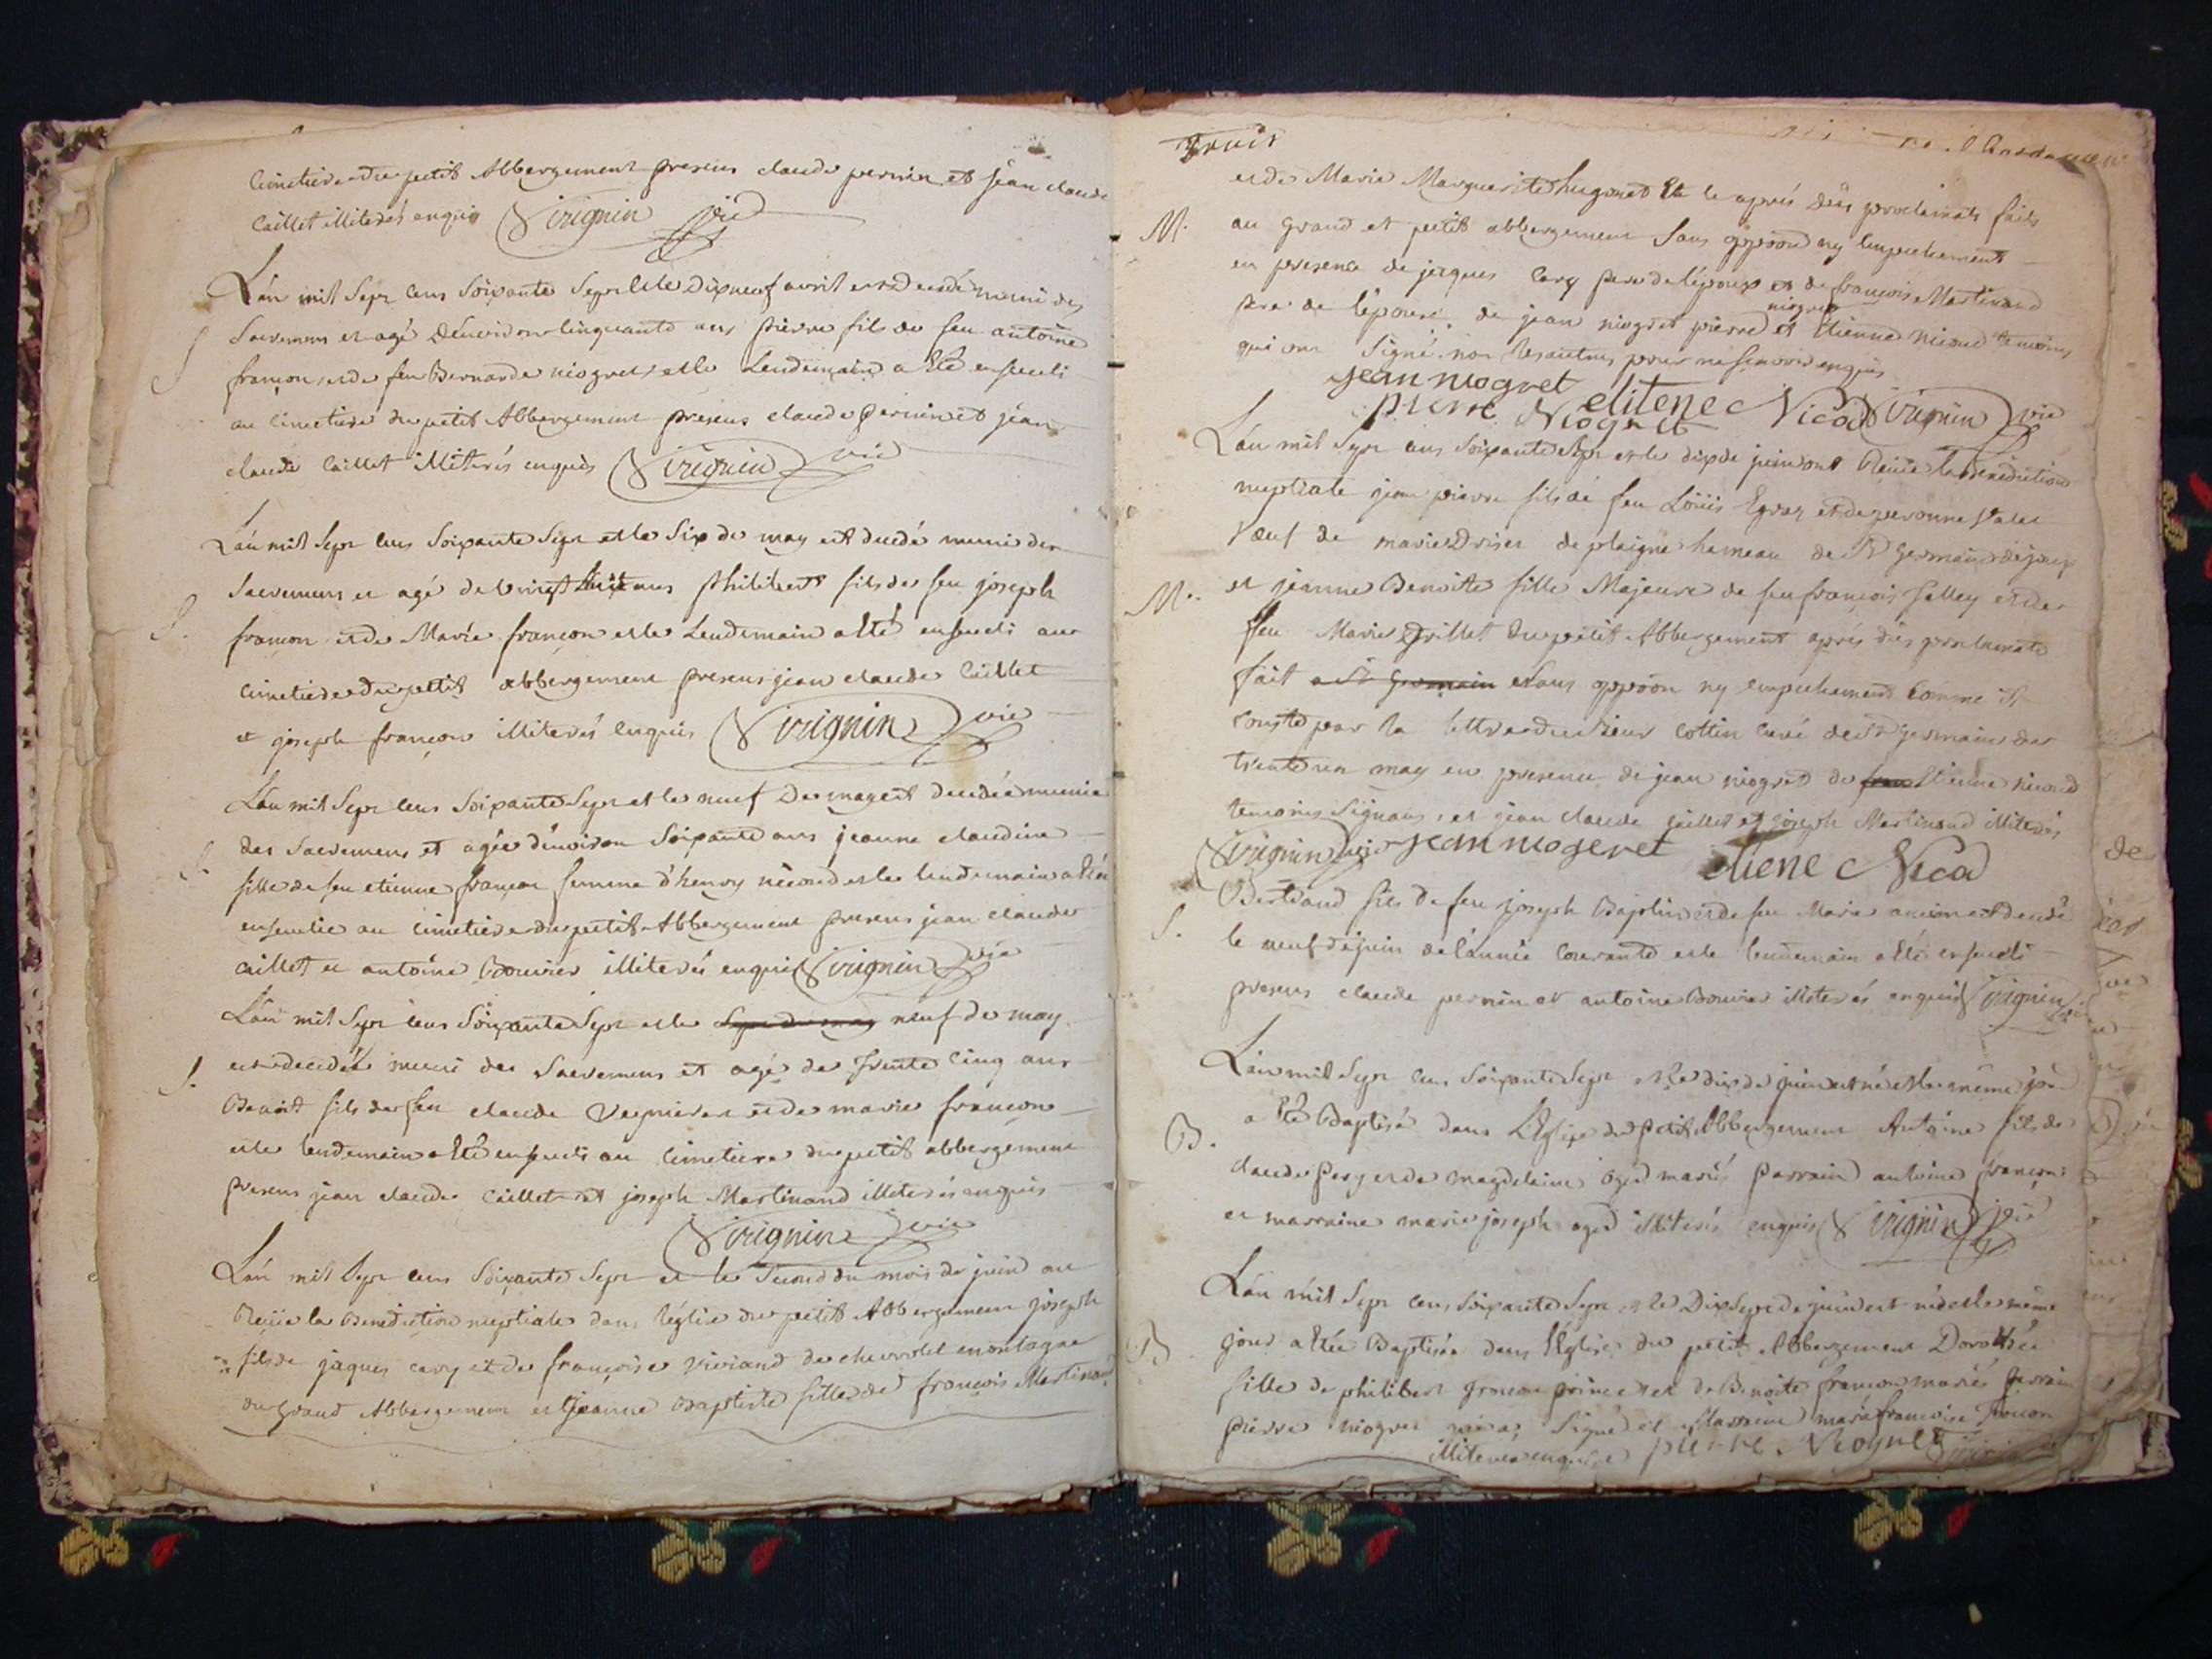 cimetiere du petit Abbergement presens claude pernin et jean claude
caillet illiterés enquis Virignin vic
L'án mil sept cens soixante sept et le dix neuf avril est decedé muni des
S sacremens et agé d'environ cinquante ans pierre fils de feu antoine
françon et de feu Bernarde niogret et le Lendemain a été enseveli
au cimetiere du petit Abbergement presens claude pernin et jean
claude caillet illiterés enquis Virignin vic
L'án mil sept cens soixante sept et le six de may est decedé muni des
sacremens et agé de vingt huit ans philibert fils de feu joseph
S. françon et de Marie françon et le Lendemain a été enseveli au
cimetiere du petit abbergement presens jean claude caillet
et joseph françon illiterés enquis Virignin vic
L'án mil sept cens soixante sept et le neuf de may est decedée munie
des sacremens et agée d'environ soixante ans jeanne claudine
S. fille de feu etienne françon femme d'henry nicond et le lendemain a été
ensevelie au cimetiere du petit Abbergement presens jean claude
caillet et antoine Bouvier illiterés enquis Virignin vic
L'án mil sept cens soixante sept et le sept de may neuf de may
S. est decedé muni des sacremens et agé de trente cinq ans
Benoit fils de feu claude et de marie françon
et le lendemain a été enseveli au cimetiere du petit abbergement
presens jean claude caillet et joseph Martinand illiterés enquis
Virignin vic
L'án mil sept cens soixante sept et le second du mois de juin on
Reçüe la Benediction nuptiale dans l'église du petit Abbergement joseph
fils de jaques cary et de françoise viviand de chevrolet montagne
du grand Abbergement et jeanne Baptiste fille de françois Martinand
trois
et de Marie Marguerite hugonet Et le aprés dües proclamats faits
M. au grand et petit abbergement sans opposon ny empechement
en presence de jaques cary pere de l'époux et de françois Martinand
pere de l'épouse, de jean niogret pierre niogret et Etienne nicond temoins
qui ont signé non les autres pour ne scavoir enquis
jean niogret
pierre Niogret etitene Nicod Virignin vic
L'án mil sept cens soixante sept et le dix de juin ont Reçüe la Benediction
nuptiale jean pierre fils de feu Loüis Egraz et de peronne
veuf de marie de plaigne hameau de St Germain dejoux
M. et jeanne Benoitte fille Majeure de feu françois Falley et de
feu Marie Grillet du petit Abbergement aprés dües proclamats
fait a St germain et sans opposon ny empechement comme il
conste par la lettre du sieur cottin curé de St germain du
trente un may en presence de jean niogret de Etienne nicond
temoins signans, et jean claude caillet et joseph Martinand illiterés
Virignin vic jean niogeret
etiene Nicod
Bertrand fils de feu joseph Baptin et de feu Marie est decedé
S. le neuf de juin de l'année courante et le lendemain a été enseveli
presens claude pernin et antoine Bouvier illiterés enquis Virignin
L'án mil sept cens soixante sept et le dix de juin est né et le même jour
B. a été Baptisé dans L'Eglise du Petit Abbergement Antoine fils de
claude et de magdelaine oged mariés parrain antoine françon
et marraine marie joseph oged illiterés enquis Virignin vic
L'án mil sept cens soixante sept et le Dix sept de juin est née et le même
B jour a été Baptisée dans l'Eglise du petit Abbergement Dorothée
fille de philibert françon prince et de Benoite françon mariés parrain
pierre niogret qui a signé et Marraine marie françoise françon
illiterée enquise pierre Niogret